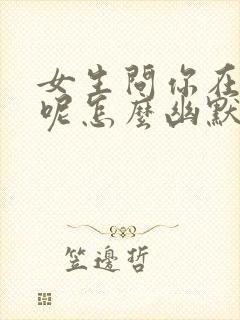 女生問你在
呢怎麼幽默
笠邊哲